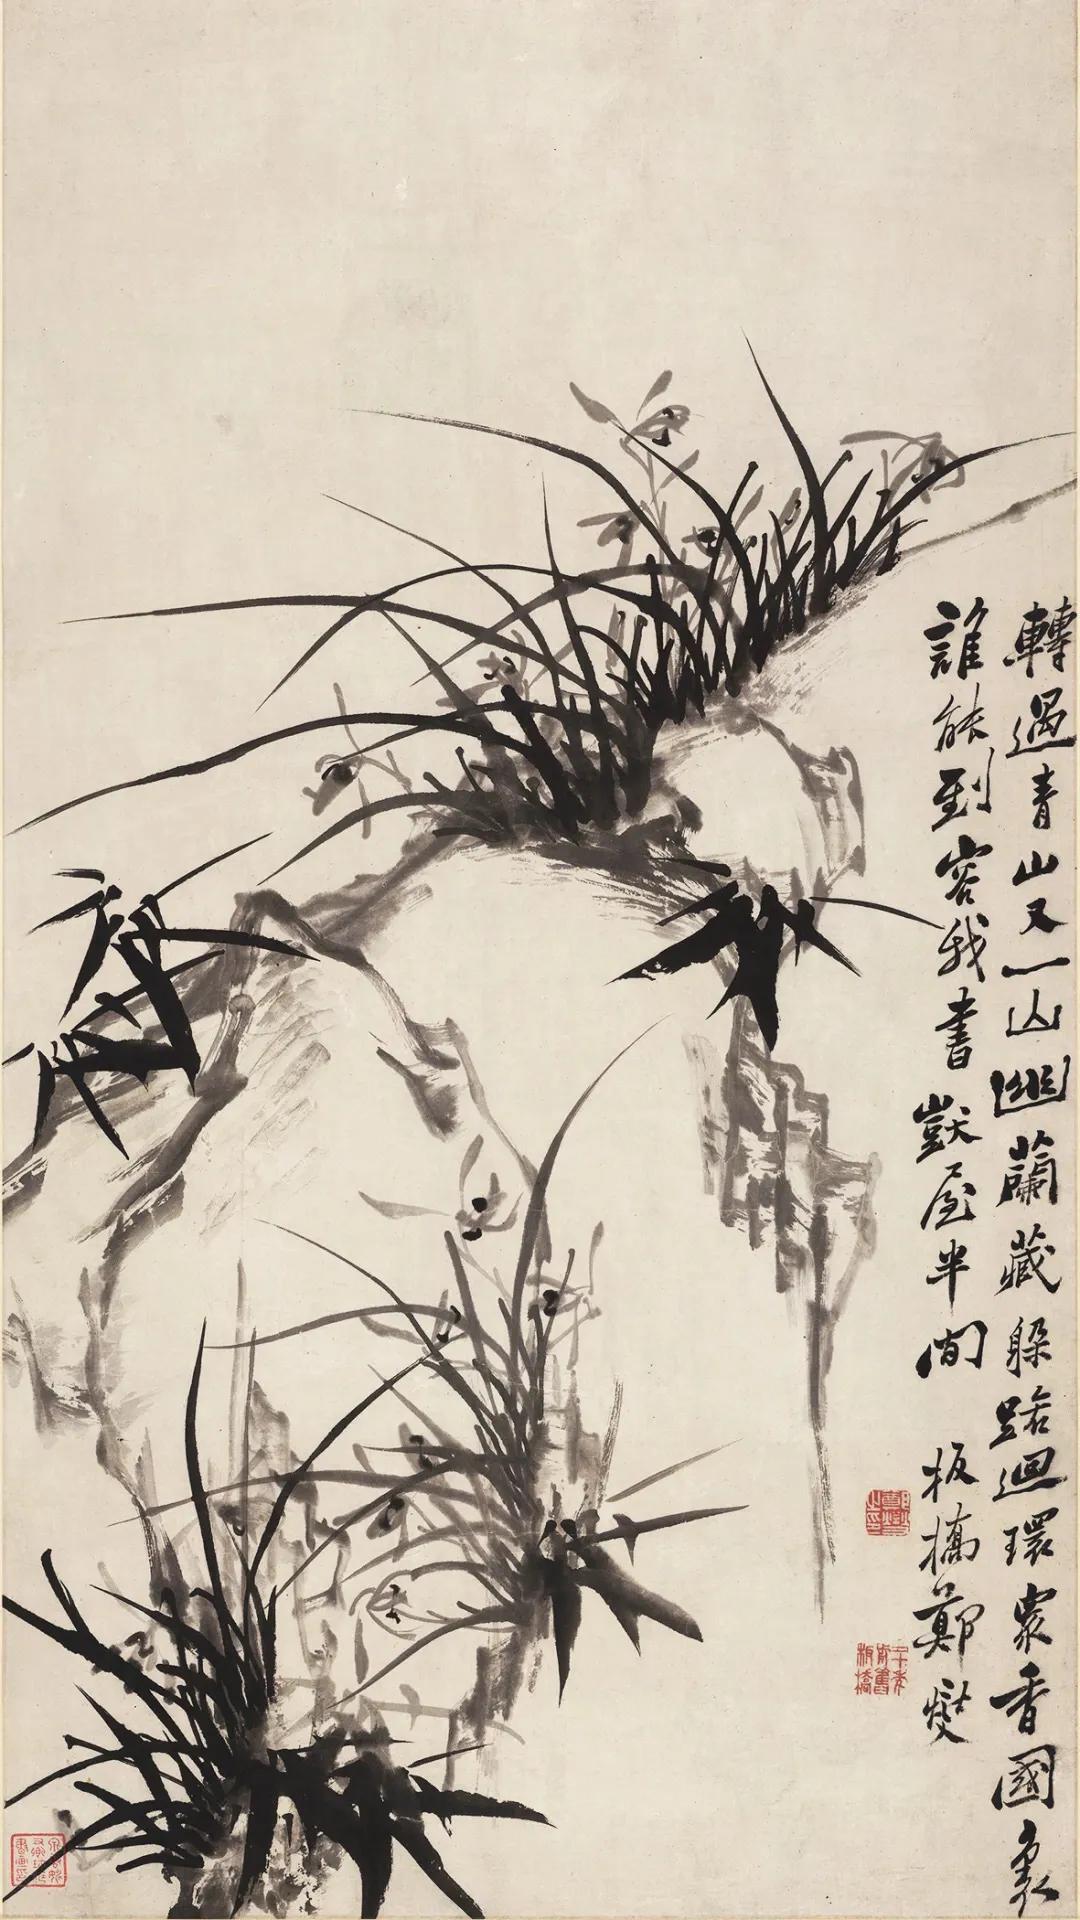 轉過青山又一山幽蘭藏躲路迴環衆香國裏
誰能到容我書獃屋半間 板橋鄭燮
鄭燮之印